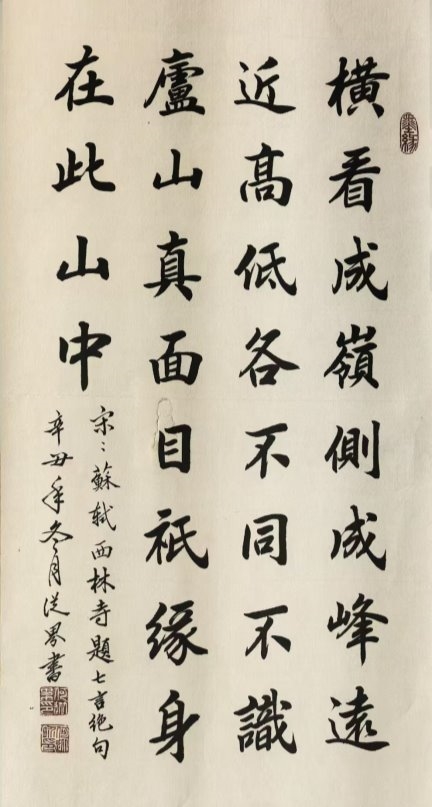 橫看成嶺側成峰遠
近高低各不同不識
廬山真面目祇緣身
在此山中
宋:蘇軾西林寺題七言絕句
辛丑年冬月從界書